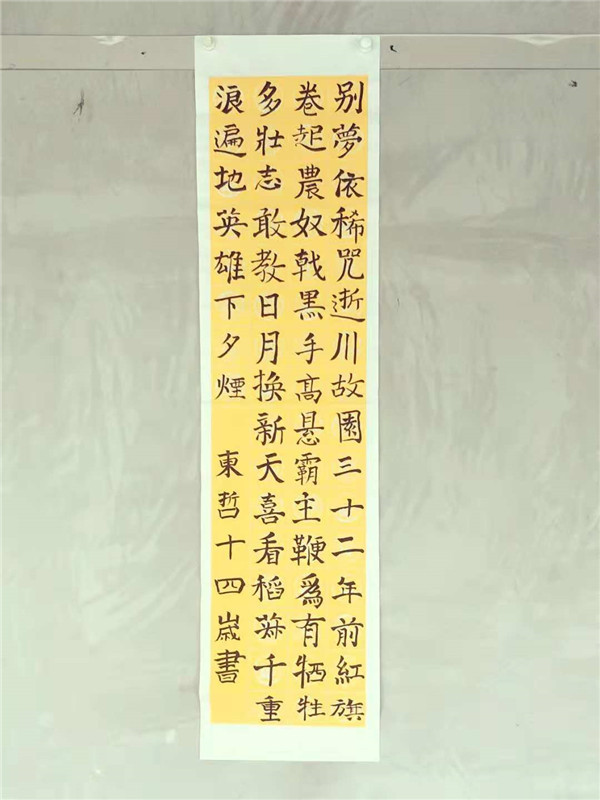 别夢依稀咒逝川故園三十二年前紅旗
卷起農奴戟黒手高悬霸主鞭爲有牺牲
多壮志敢教日月换新天喜看稻菽千重
浪遍地英雄下夕煙 東哲十四歲書